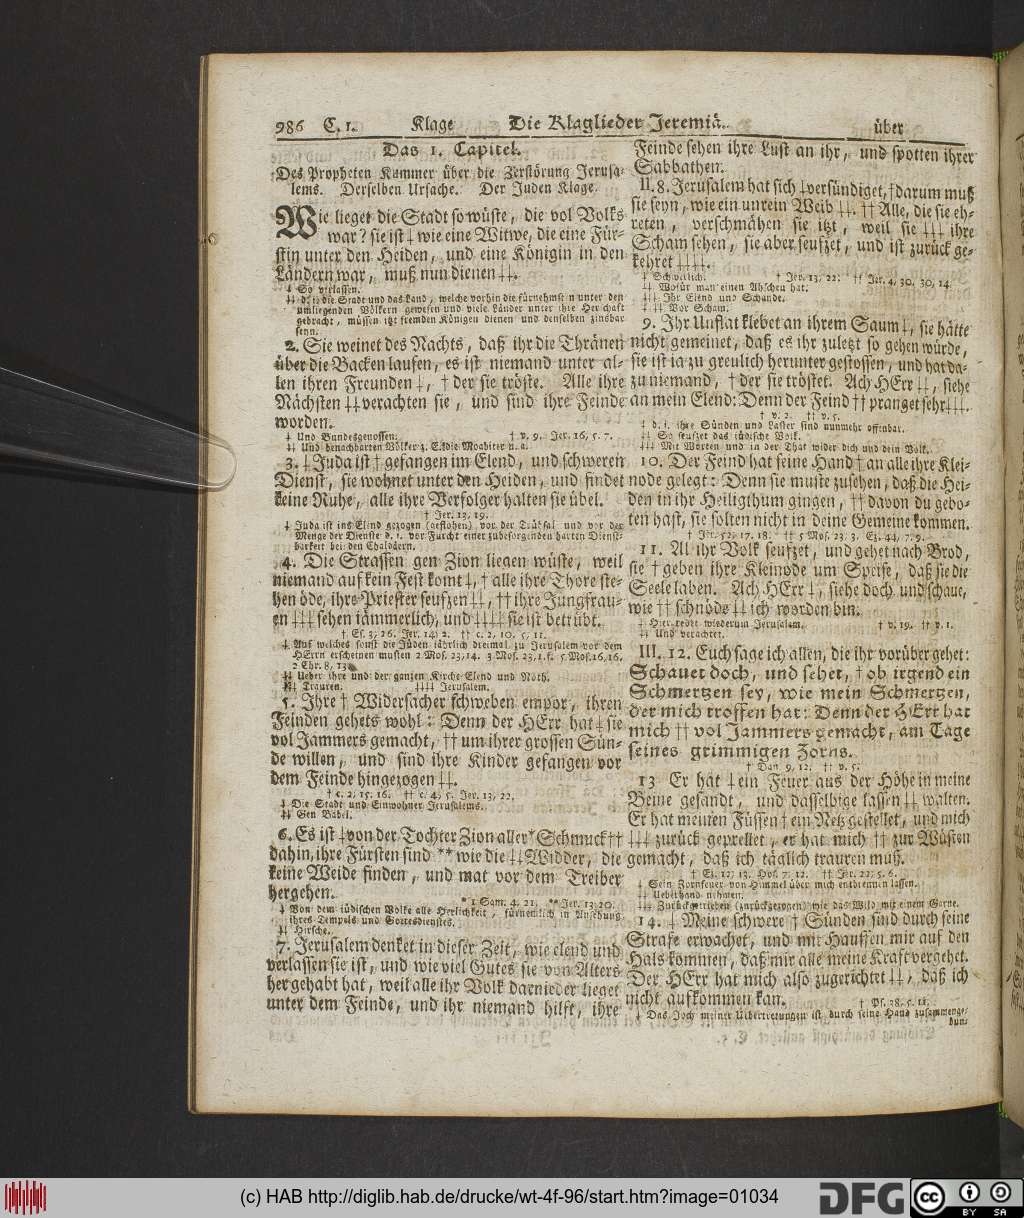 986 C. 1. Klage Die Klaglieder Jeremiä. über
Das 1. Capitel.
Des Propheten Kummer über die Zerstörung Jerusa-
lems. Derselben Ursache. Der Juden Klage.
Wie lieget die Stadt so wüste, die vol Volks
war? sie ist ‡ wie eine Witwe, die eine Für-
stin unter den Heiden, und eine Königin in den
Ländern war, muß nun dienen ‡‡.
‡ So verlassen.
‡‡ d. i. die Stadt und das Land, welche vorhin die fürnehmsten unter den
umliegenden Völkern gewesen und viele Länder unter ihre Herrschaft
gebracht, müssen itzt fremden Königen dienen und denselben zinsbar
seyn.
2. Sie weinet des Nachts, daß ihr die Thränen
über die Backen laufen, es ist niemand unter al-
len ihren Freunden ‡, † der sie tröste. Alle ihre
Nächsten ‡‡ verachten sie, und sind ihre Feinde
worden.
‡ Und Bundesgenossen. † v. 9. Jer. 16, 5. 7.
‡‡ Und benachbarten Völker z. E. die Moabiter u. a.
3. ‡ Juda ist † gefangen im Elend, und schweren
Dienst, sie wohnet unter den Heiden, und findet
keine Ruhe, alle ihre Verfolger halten sie übel.
† Jer. 13, 19.
‡ Juda ist ins Elend gezogen (geflohen) vor der Trübsal und vor der
Menge der Dienste d. i. vor Furcht einer zubesorgenden harten Dienst-
barkeit bei den Chaldäern.
4. Die Strassen gen Zion liegen wüste, weil
niemand auf kein Fest komt ‡, † alle ihre Thore ste-
hen öde, ihre Priester seufzen ‡‡, †† ihre Jungfrau-
en ‡‡‡ sehen jämmerlich, und ‡‡‡‡ sie ist betrübt.
† Es. 3, 26. Jer. 14, 2. †† c. 2, 10. 5, 11.
‡ Auf welches sonst die Jüden jährlich dreimal zu Jerusalem vor dem
HErrn erscheinen musten 2 Mos. 23, 14. 3 Mos. 23, 1. f. 5 Mos. 16, 16.
2 Chr. 8, 13.
‡‡ Ueber ihre und der ganzen Kirche Elend und Noth.
‡‡‡ Trauren. ‡‡‡‡ Jerusalem.
5. Ihre † Widersacher schweben empor, ihren
Feinden gehets wohl: Denn der HErr hat ‡ sie
vol Jammers gemacht, †† um ihrer grossen Sün-
de willen, und sind ihre Kinder gefangen vor
dem Feinde hingezogen ‡‡.
† c. 2, 15. 16. †† c. 4, 5. Jer. 13, 22.
‡ Die Stadt und Einwohner Jerusalems.
‡‡ Gen Babel.
6. Es ist ‡ von der Tochter Zion aller * Schmuck ††
dahin, ihre Fürsten sind ** wie die ‡‡ Widder, die
keine Weide finden, und mat vor dem Treiber
hergehen.
* 1 Sam. 4, 21. ** Jer. 13, 20.
‡ Von dem jüdischen Volke alle Herlichkeit, fürnemlich in Ansehung
ihres Tempels und Gottesdienstes.
‡‡ Hirsche.
7. Jerusalem denket in dieser Zeit, wie elend und
verlassen sie ist, und wie viel Gutes sie von Alters
her gehabt hat, weil alle ihr Volk darnieder lieget
unter dem Feinde, und ihr niemand hilft, ihre
Feinde sehen ihre Lust an ihr, und spotten ihrer
Sabbathen.
II. 8. Jerusalem hat sich ‡ versündiget, † darum muß
sie seyn, wie ein unrein Weib ‡‡. †† Alle, die sie eh-
reten, verschmähen sie itzt, weil sie ‡‡‡ ihre
Scham sehen, sie aber seufzet, und ist zurück ge-
kehret ‡‡‡‡.
‡ Schwerlich. † Jer. 13, 22. †† Jer. 4, 30. 30, 14.
‡‡ Wofür man einen Abscheu hat.
‡‡‡ Ihr Elend und Schande.
‡ ‡‡ Vor Scham.
9. Ihr Unflat klebet an ihrem Saum ‡, sie hätte
nicht gemeinet, daß es ihr zuletzt so gehen würde,
sie ist ja zu greulich herunter gestossen, und hat da-
zu niemand, † der sie tröstet. Ach HErr ‡‡, siehe
an mein Elend: Denn der Feind †† pranget sehr ‡‡‡.
† v. 2. †† v. 5.
‡ d. i. ihre Sünden und Laster sind nunmehr offenbar.
‡‡ So seufzet das jüdische Volk.
‡‡‡ Mit Worten und in der That wider dich und dein Volk.
10. Der Feind hat seine Hand † an alle ihre Klei-
node gelegt: Denn sie muste zusehen, daß die Hei-
den in ihr Heiligthum gingen, †† davon du gebo-
ten hast, sie solten nicht in deine Gemeine kommen.
† Jer. 52, 17. 18. †† 5 Mos. 23, 3. Ez. 44, 7. 9.
11. Al ihr Volk seufzet, und gehet nach Brod,
sie † geben ihre Kleinode um Speise, daß sie die
Seele laben. Ach HErr ‡, siehe doch und schaue,
wie †† schnöde ‡‡ ich worden bin.
‡ Hier redet wiederum Jerusalem. † v. 19. †† v. 1.
‡‡ Und verachtet.
III. 12. Euch sage ich allen, die ihr vorüber gehet:
Schauet doch, und sehet, † ob irgend ein
Schmertzen sey, wie mein Schmertzen,
der mich troffen hat: Denn der HErr hat
mich †† vol Jammers gemacht, am Tage
seines grimmigen Zorns.
† Dan. 9, 12. †† v. 5.
13 Er hat ‡ ein Feuer aus der Höhe in meine
Beine gesandt, und dasselbige lassen ‡‡ walten.
Er hat meinen Füssen † ein Netz gestellet, und mich
‡‡‡ zurück geprellet, er hat mich †† zur Wüsten
gemacht, daß ich täglich trauren muß.
† Ez. 12, 13. Hos. 7, 12. †† Jer. 22, 5. 6.
‡ Sein Zornfeuer von Himmel über mich entbrennen lassen.
‡‡ Ueberhand nehmen.
‡‡‡ Zurückgetrieben (zurückgezogen) wie das Wild mit einem Garne.
14. ‡ Meine schwere † Sünden sind durch seine
Strafe erwachet, und mit Hauffen mir auf den
Hals kommen, daß mir alle meine Kraft vergehet.
Der HErr hat mich also zugerichtet ‡‡, daß ich
nicht aufkommen kan. † Ps. 38, 5. 11.
‡ Das Joch meiner Übertretungen ist durch seine Hand zusammenge-
bun-
(c) HAB http://diglib.hab.de/drucke/wt-4f-96/start.htm?image=01034
DFG
cc BY SA